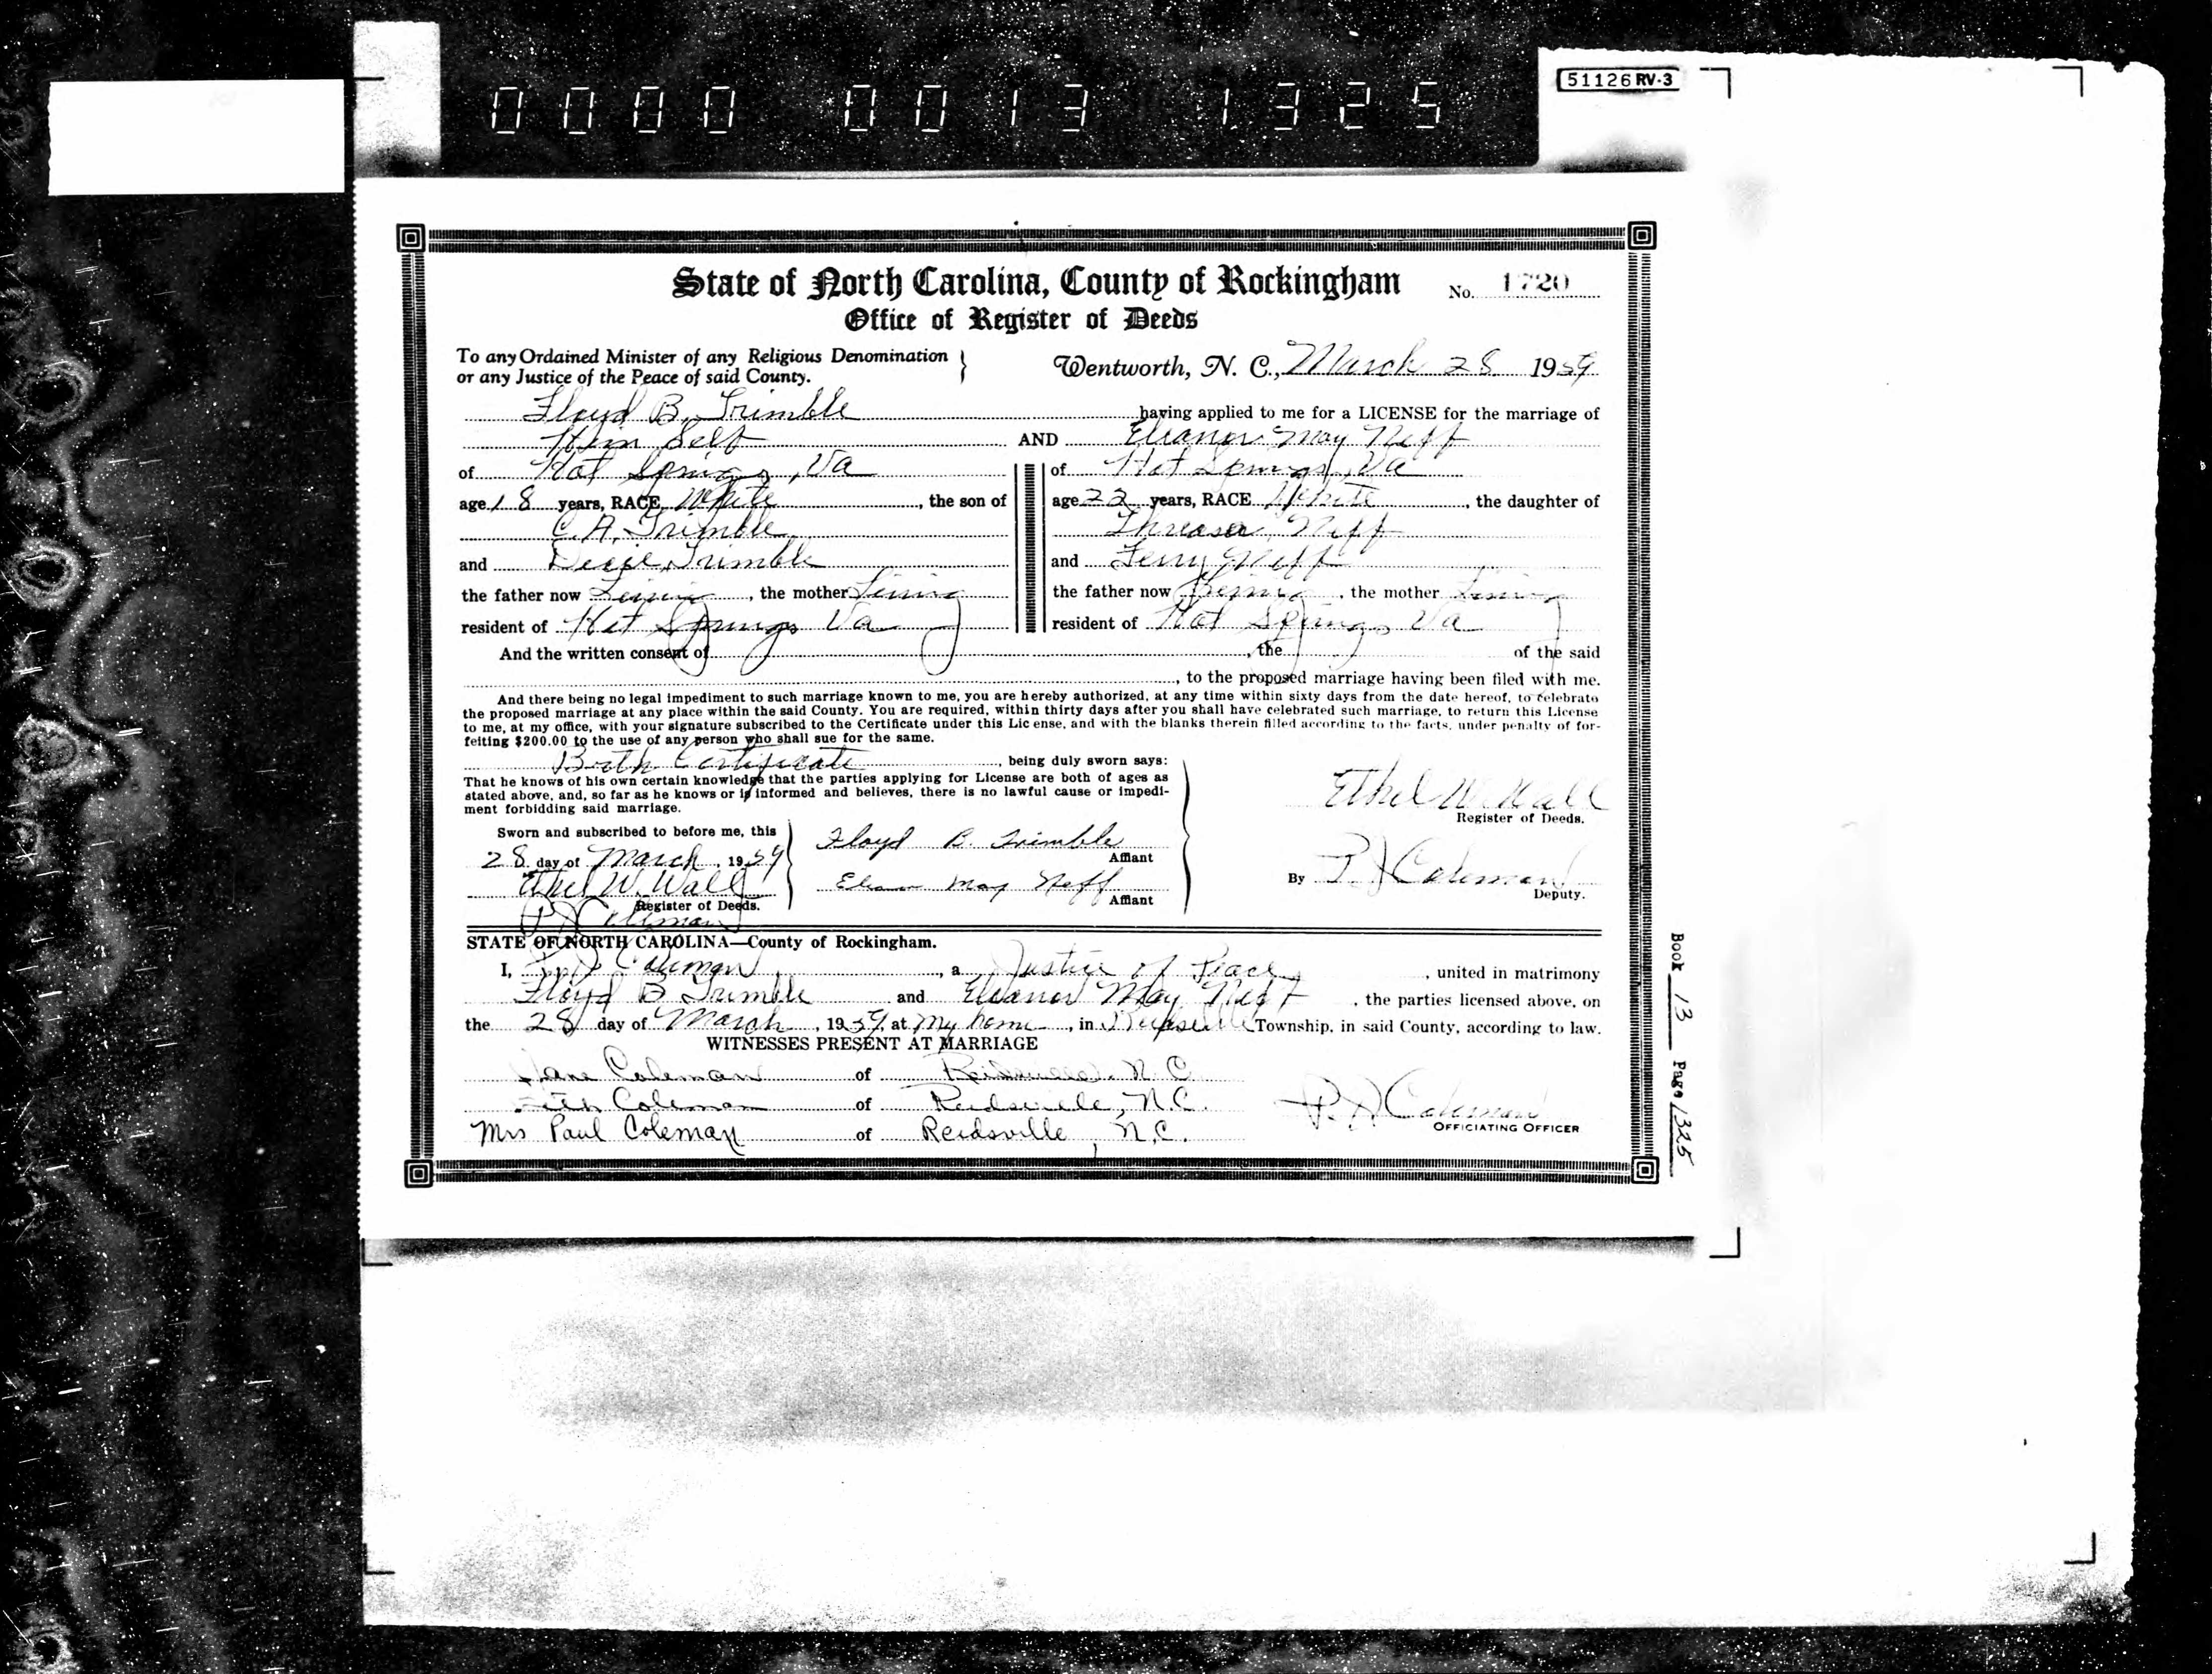 0000 0013 1325
51126 RV-3
State of North Carolina, County of Rockingham No. 1720
Office of Register of Deeds
To any Ordained Minister of any Religious Denomination
or any Justice of the Peace of said County.
Wentworth, N. C., March 28 1959
Floyd B. Trimble having applied to me for a LICENSE for the marriage of
Him Self AND Eleanor May Neff
of Hot Springs, Va of Hot Springs, Va
age 18 years, RACE White, the son of age 22 years, RACE White, the daughter of
C. A. Trimble Threasa Neff
and Dixie Trimble and Ferry Neff
the father now Living, the mother Living the father now Being, the mother Living
resident of Hot Springs Va resident of Hot Springs Va
And the written consent of , the of the said
, to the proposed marriage having been filed with me.
And there being no legal impediment to such marriage known to me, you are hereby authorized, at any time within sixty days from the date hereof, to celebrate
the proposed marriage at any place within the said County. You are required, within thirty days after you shall have celebrated such marriage, to return this License
to me, at my office, with your signature subscribed to the Certificate under this Lic ense, and with the blanks therein filled according to the facts, under penalty of for-
feiting $200.00 to the use of any person who shall sue for the same.
Birth Certificate, being duly sworn says:
That he knows of his own certain knowledge that the parties applying for License are both of ages as
stated above, and, so far as he knows or is informed and believes, there is no lawful cause or impedi-
ment forbidding said marriage.
Ethel W. Wall
Register of Deeds.
Sworn and subscribed to before me, this
28 day of March, 1959
Ethel W. Wall
Register of Deeds.
P J Coleman
Floyd B. Trimble
Affiant
Eleanor May Neff
Affiant
By P J Coleman
Deputy.
STATE OF NORTH CAROLINA—County of Rockingham.
I, P J Coleman, a Justice of Peace, united in matrimony
Floyd B Trimble and Eleanor May Neff, the parties licensed above, on
the 28 day of March, 1959, at My home, in Reidsville Township, in said County, according to law.
WITNESSES PRESENT AT MARRIAGE
Jane Coleman of Reidsville, N. C.
Coleman of Reidsville, N.C.
Mrs Paul Coleman of Reidsville, N.C.
P. J Coleman
OFFICIATING OFFICER
Book 13 Page 1325